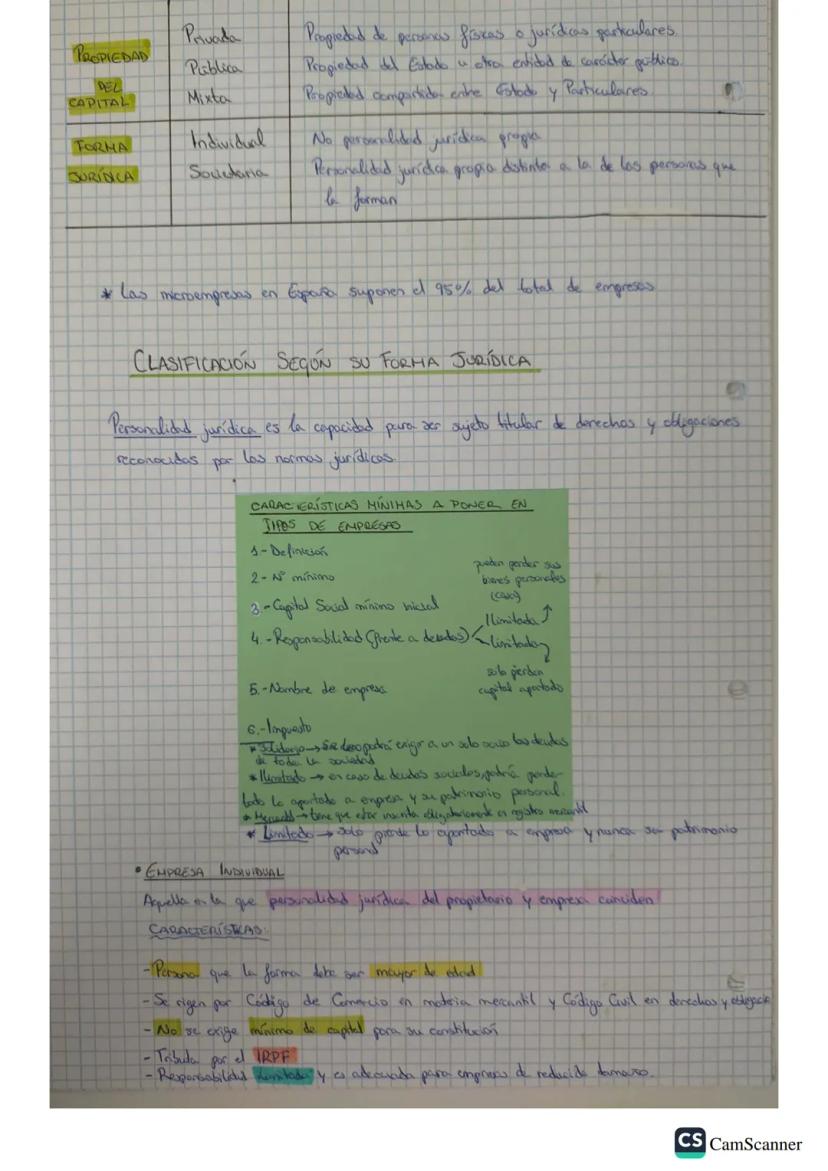 PROPIEDAD DEL CAPITAL
Privada Propiedad de personas físicas o jurídicas particulares.
Pública Propiedad del Estado u otra entidad de carácter público.
Mixta Propiedad compartida entre Estado y Particulares
FORMA JURÍDICA
Individual No personalidad jurídica propia
Societaria Personalidad jurídica propia distinta a la de las personas que
la forman
* Las microempresas en España suponen el 95% del total de empresas
CLASIFICACIÓN SEGÚN SU FORMA JURÍDICA
Personalidad jurídica es la capacidad para ser sujeto titular de derechos y obligaciones
reconocidas por las normas jurídicas.
CARACTERÍSTICAS MÍNIMAS A PONER EN
TIPOS DE EMPRESAS
1.- Definición
2.- Nº mínimo
3.- Capital Social mínimo inicial
4.- Responsabilidad (frente a deudas)
Ilimitada
pueden perder sus
bienes personales
(casa)
limitada
solo pierden
capital aportado
5.- Nombre de empresa
6.- Impuesto
* Solidaria → podrá exigir a un solo socio las deudas
de toda la sociedad
* Ilimitado → en caso de deudas sociales, podría perder
todo lo aportado a empresa y su patrimonio personal.
→ tiene que estar inscrita obligatoriamente en registro mercantil
* Limitado → solo pierde lo aportado a empresa y nunca su patrimonio
personal
• EMPRESA INDIVIDUAL
Aquella en la que personalidad jurídica del propietario y empresa coinciden
CARACTERÍSTICAS:
- Persona que la forma debe ser mayor de edad
- Se rigen por Código de Comercio en materia mercantil y Código Civil en derechos y
- No se exige mínimo de capital para su constitución
- Tributa por el IRPF
- Responsabilidad y es adecuada para empresas de reducido tamaño.
CS CamScanner